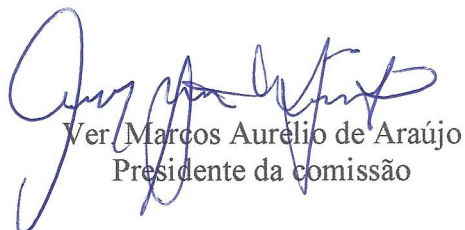 Ver. Marcos Aurélio de Araújo
Presidente da comissão